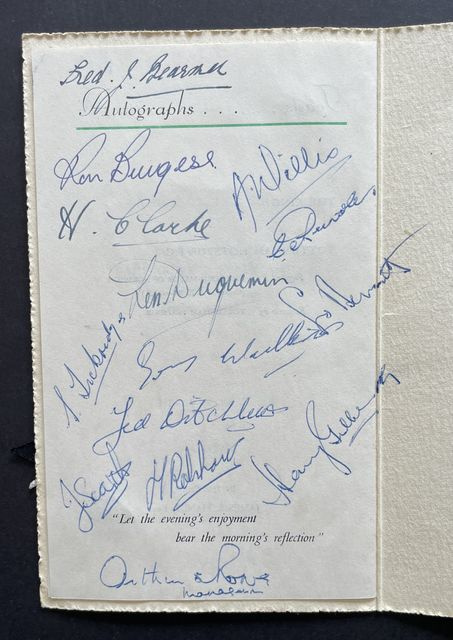 Fred. J. Bearman
Autographs . . .
Ron Burgess
A Willis
H. Clarke
C Rundle
Len Duquemin
L D Bennett
S. Tickridge
Sonny Walters
Ted Ditchburn
Harry Gilberg
J Scarth
H Robshaw
"Let the evening's enjoyment
bear the morning's reflection"
Arthur S Rowe
manager